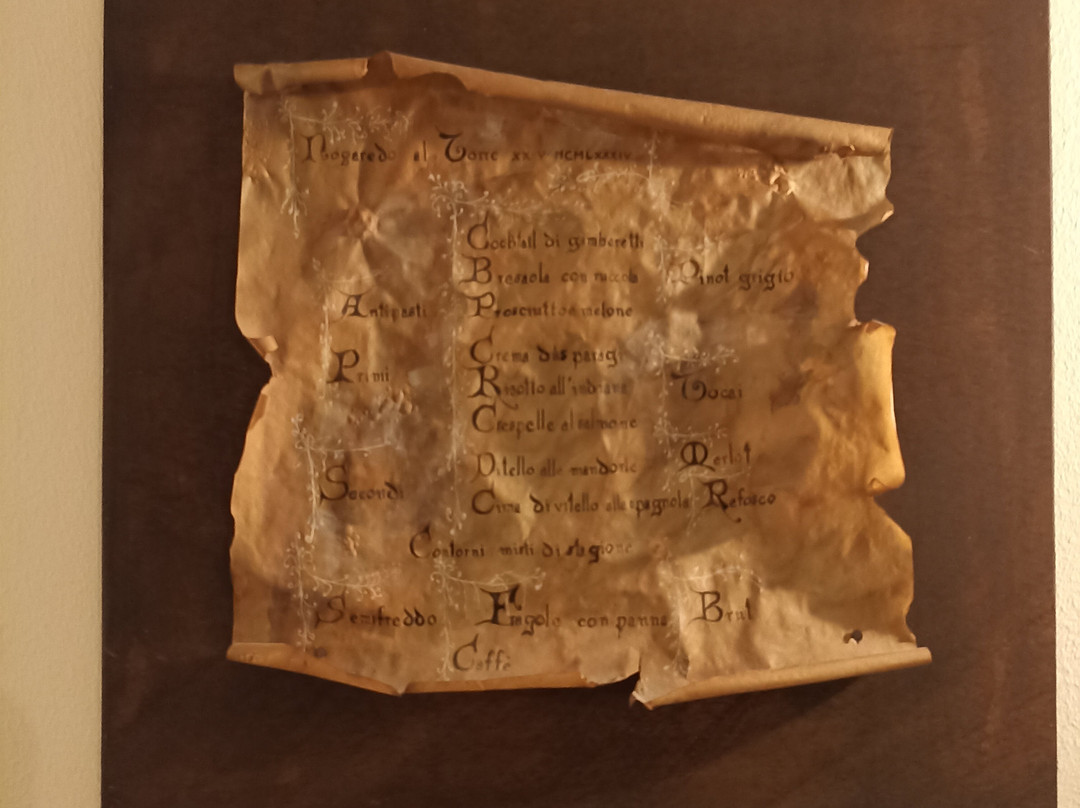 Nogaredo al Torre XX V MCMLXXXIV
Cocktail di gamberetti
Bresaola con rucola Pinot grigio
Antipasti Prosciutto e melone
Crema d'asparagi
Primi Risotto all'indiana Tocai
Crespelle al salmone
Vitello alle mandorle Merlot
Secondi Cima di vitello alla spagnola Refosco
Contorni misti di stagione
Semifreddo Fragole con panna Brut
Caffè